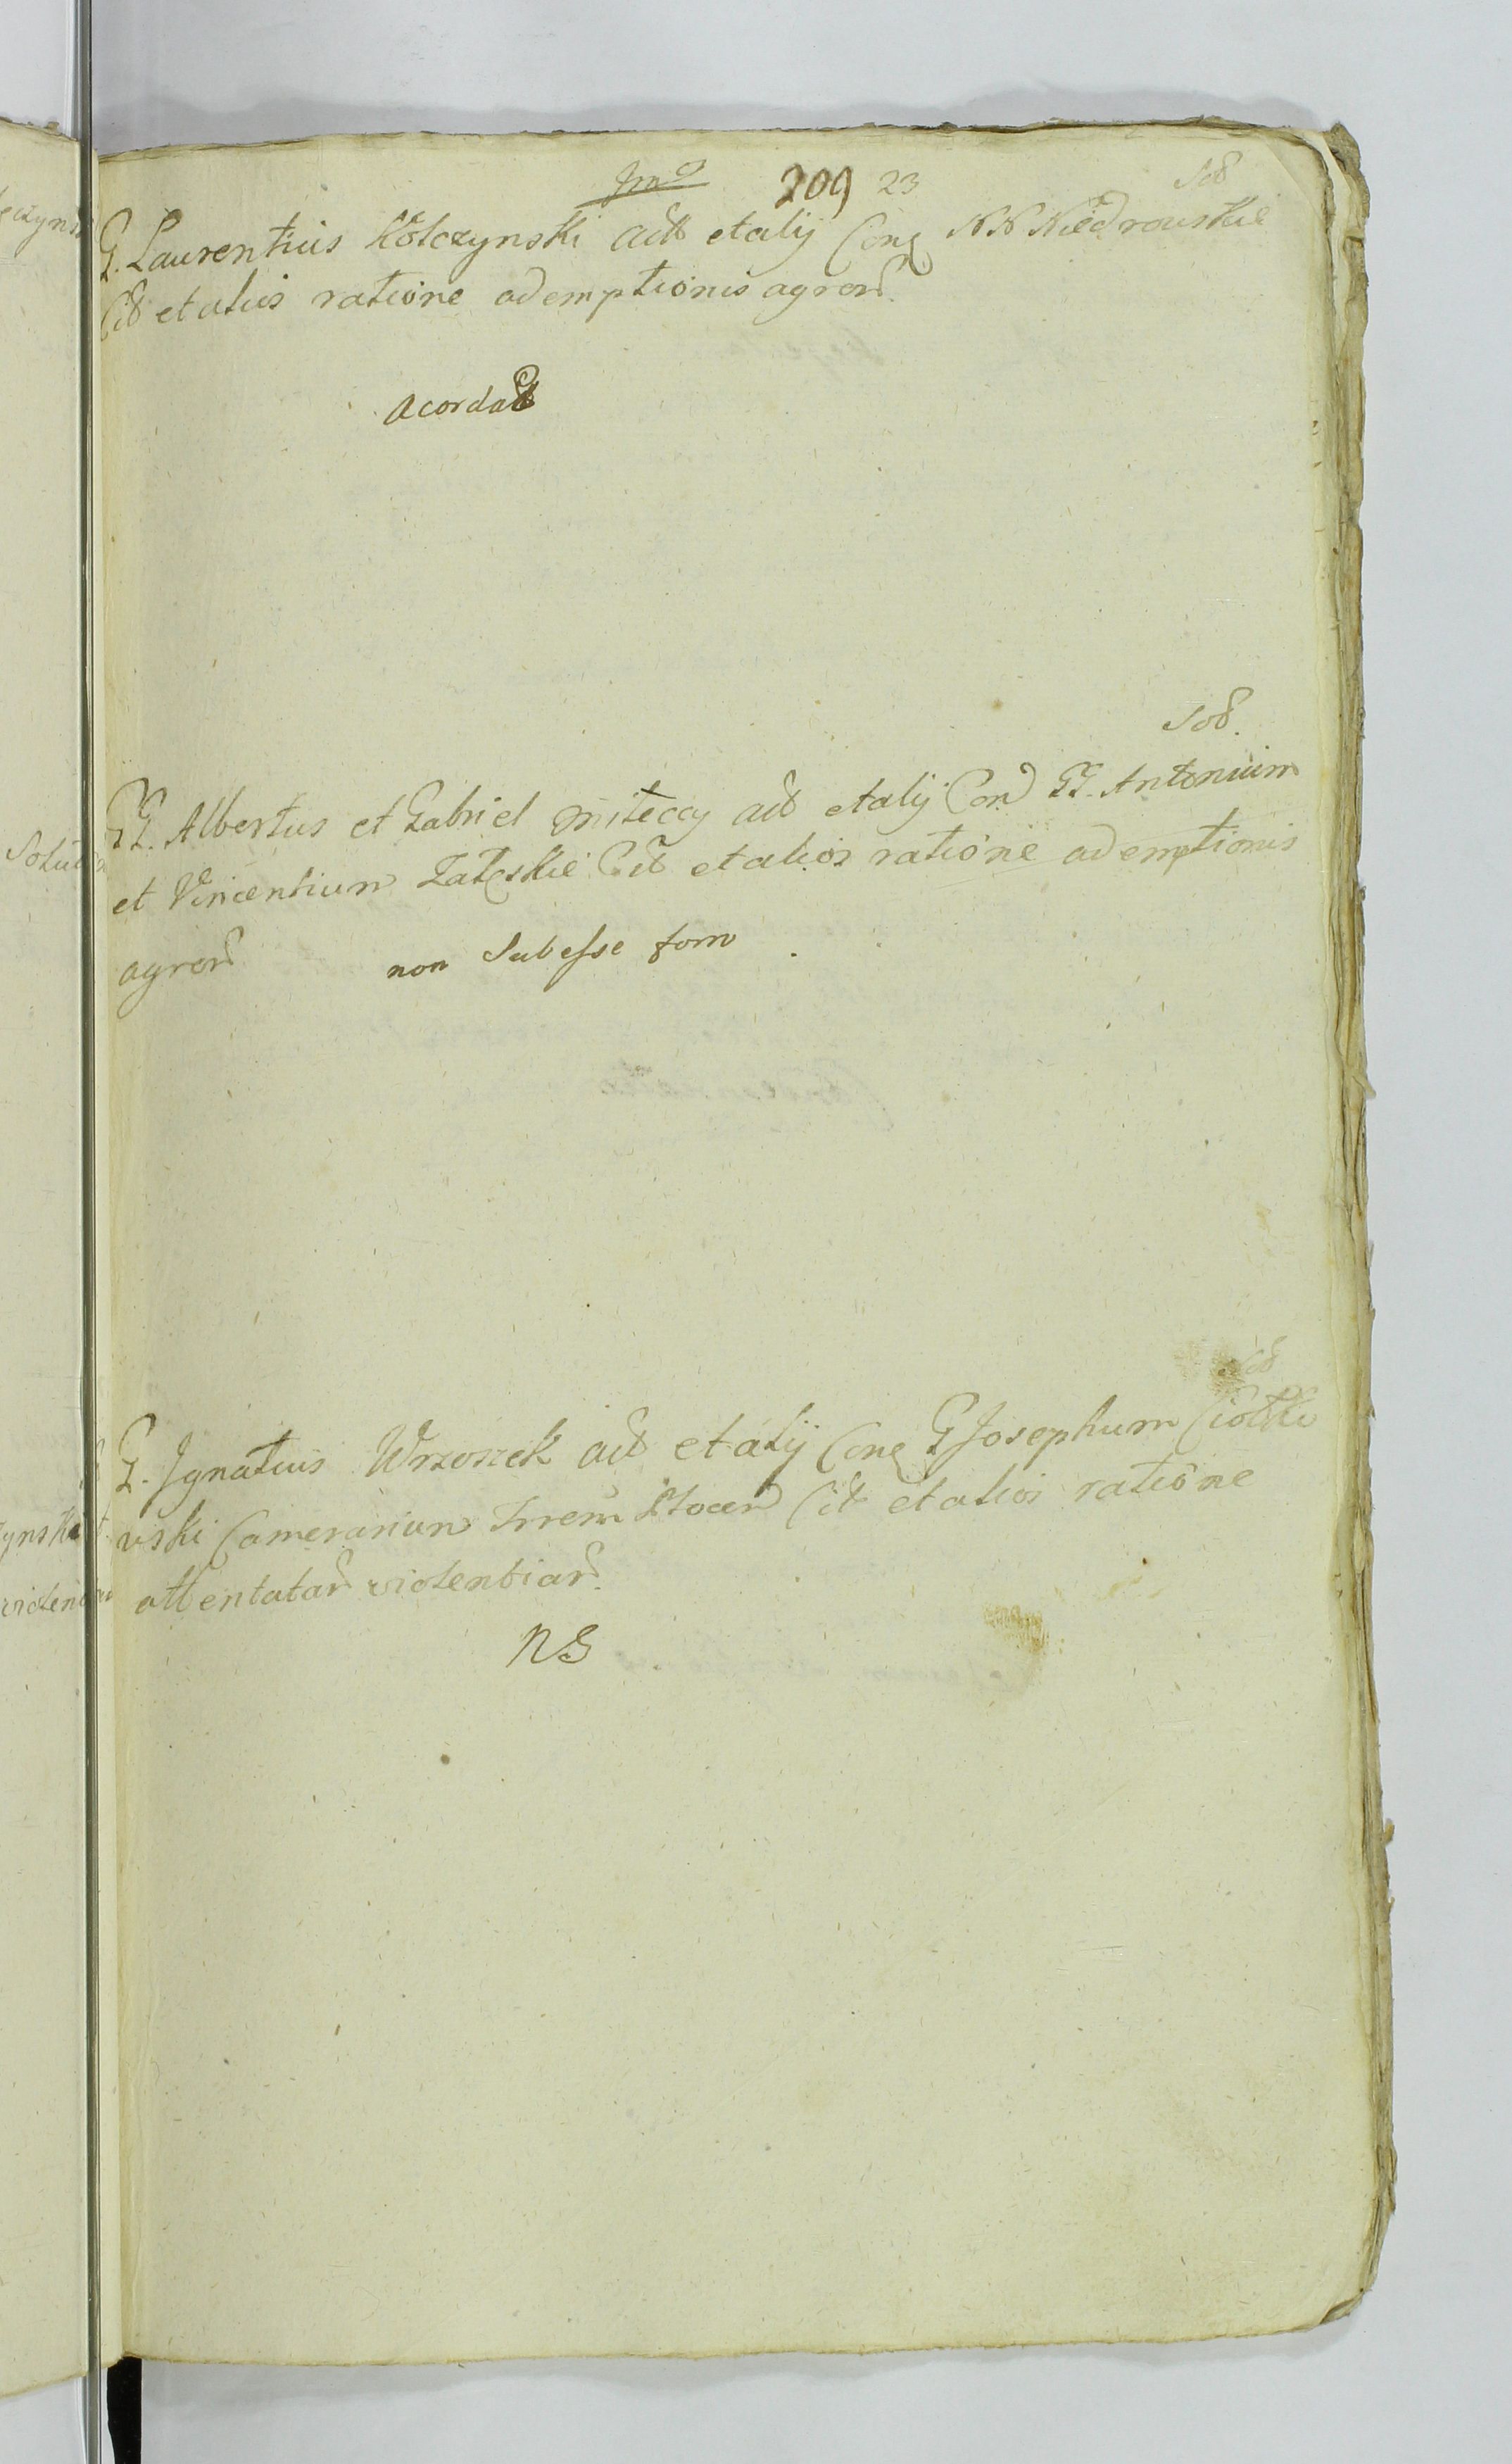 209 23
G. Laurentius Kolczynski act et alij Con NN Niedrouskie
Cit et alios ratione ademptionis agror
Acordat
GG. Albertus et Gabriel Miteccy act et alij Con GG. Antonium
et Vincentium Zaleskie Cit et alios ratione ademptionis
agror
non Subesse foro
G. Ignatius Wrzosek act et alij Con G Josephum Ciołko
wski Camerarium Cit et alios ratione
attentatar violentiar.
NS